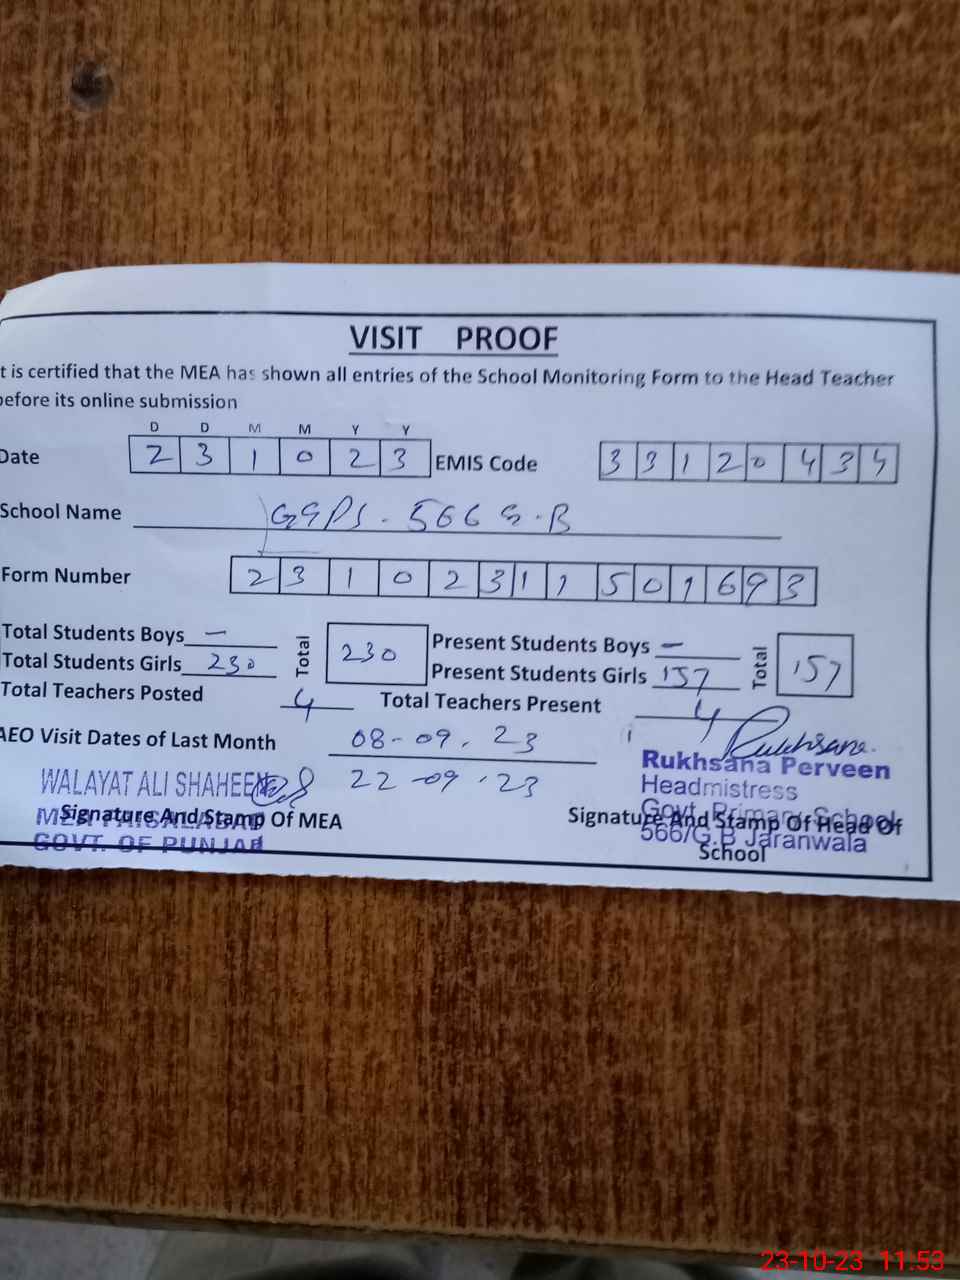 VISIT PROOF
t is certified that the MEA has shown all entries of the School Monitoring Form to the Head Teacher
before its online submission
D D M M Y Y
Date 2 3 1 0 2 3 EMIS Code 3 3 1 2 0 4 3 4
School Name GGPS. 566 G.B
Form Number 2 3 1 0 2 3 1 1 5 0 1 6 9 3
Total Students Boys — Total 230 Present Students Boys — Total 157
Total Students Girls 230 Present Students Girls 157
Total Teachers Posted 4 Total Teachers Present 4
AEO Visit Dates of Last Month 08-09.23 Rukhsana.
22-09.23
WALAYAT ALI SHAHEEN
MEA FAISALABAD
GOVT. OF PUNJAB
Signature And Stamp Of MEA
Rukhsana Perveen
Headmistress
Govt. Primary School
566/G.B Jaranwala
Signature And Stamp Of Head Of
School
23-10-23 11.53